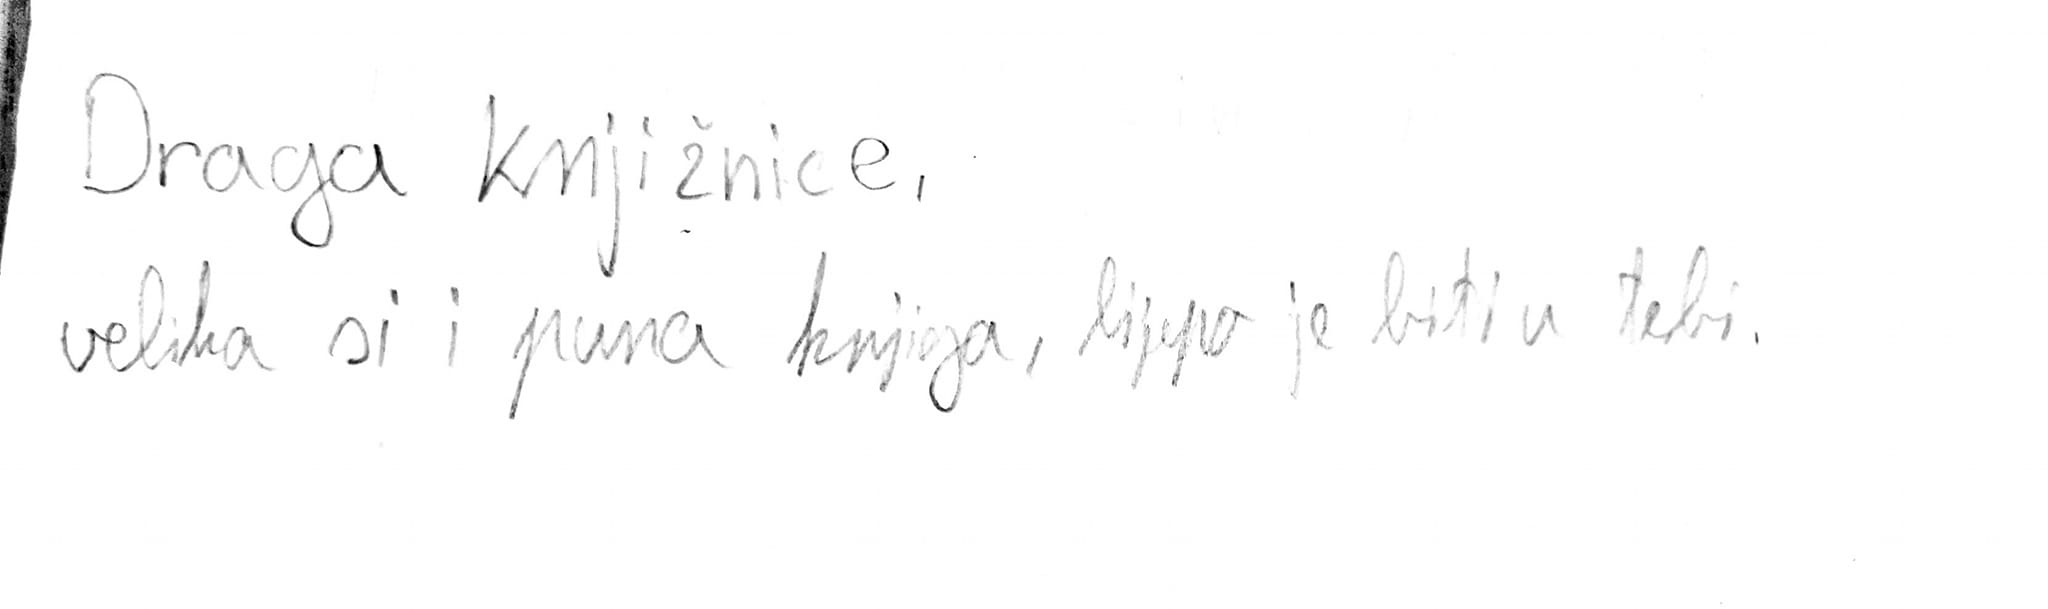 Draga knjižnice,
velika si i puna knjiga, lijepo je biti u tebi.